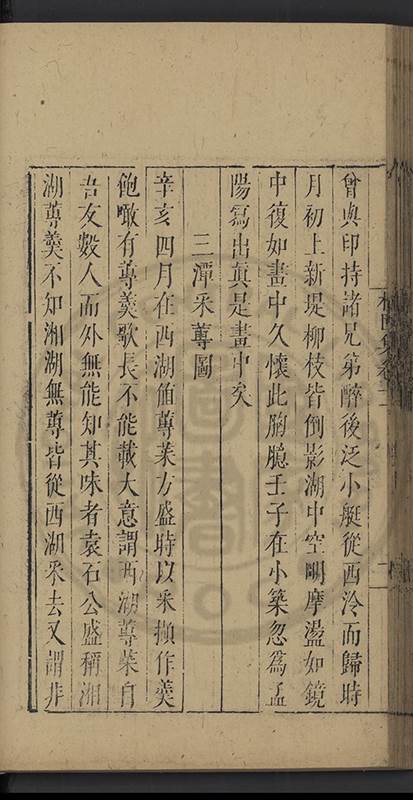 曾與印持諸兄弟醉後泛小艇從西泠而歸時
月初上新堤柳枝皆倒影湖中空明摩盪如鏡
中復如畫中久懷此胸臆壬子在小築忽為孟
陽寫出真是畫中矣
三潭采蓴圖
辛亥四月在西湖值蓴菜方盛時以采擷作羹
飽噉有蓴羹歌長不能載大意謂西湖蓴菜自
吾友數人而外無能知其味者袁石公盛稱湘
湖蓴羹不知湘湖無蓴皆從西湖采去又謂非